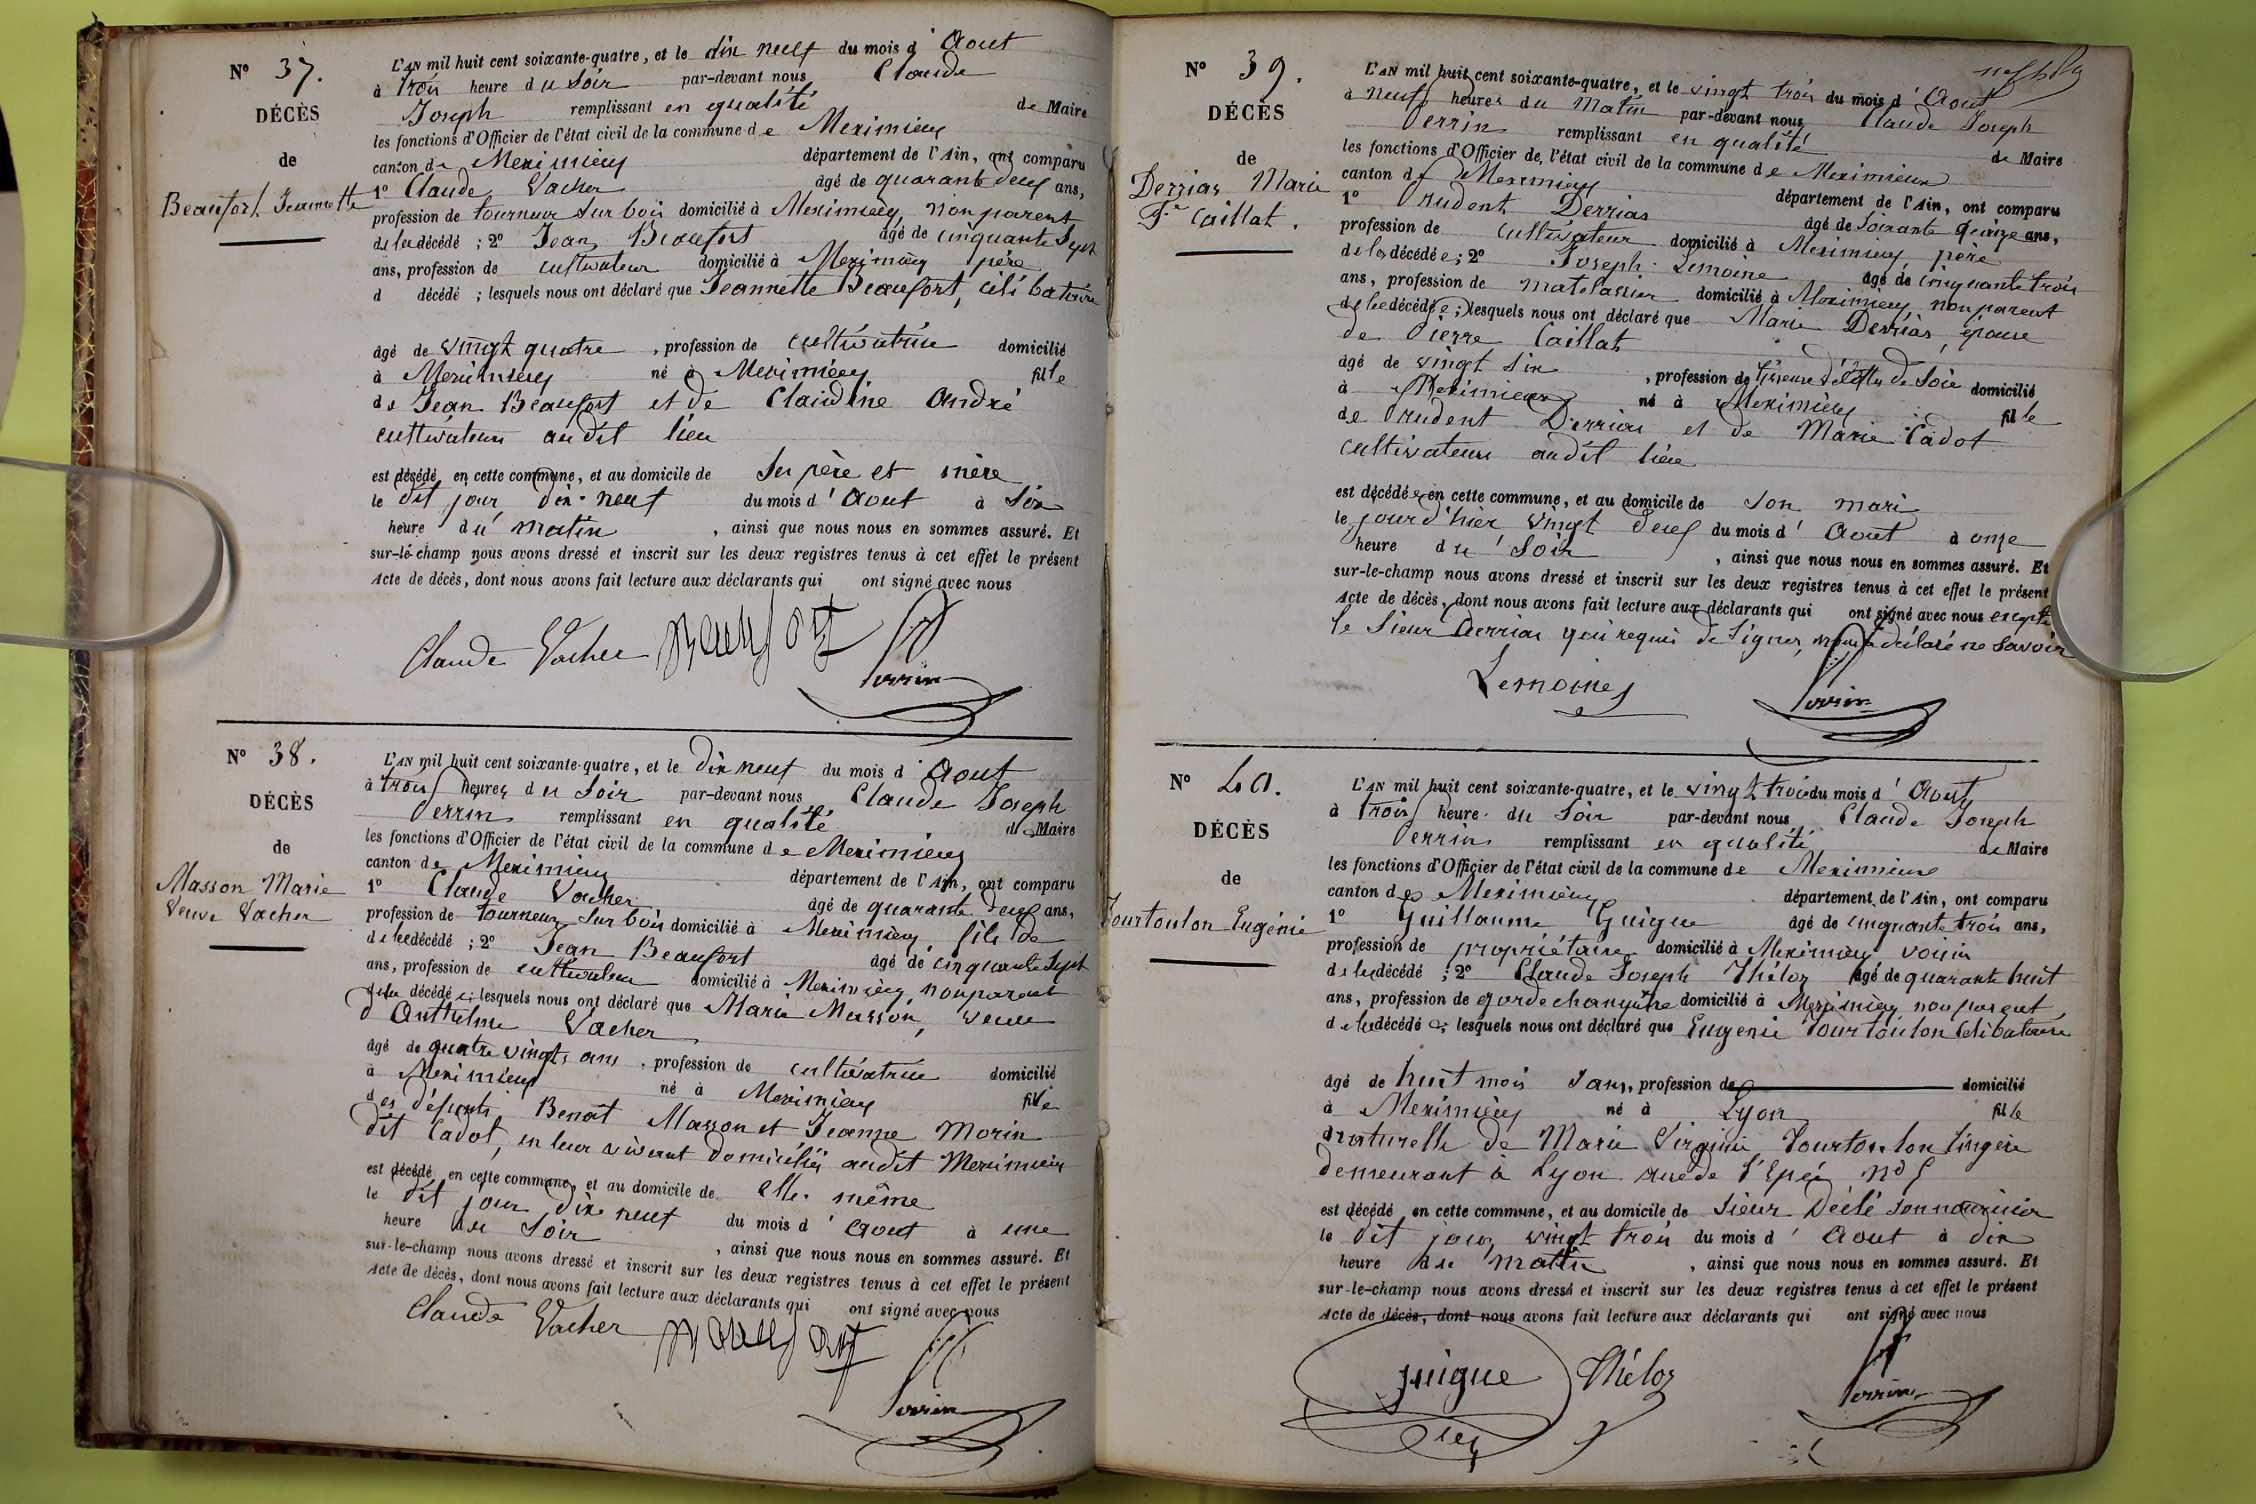 N° 37.
DÉCÈS
de
Beaufort Jeannette
L'AN mil huit cent soixante-quatre, et le dix neuf du mois d'Aout
à trois heure du Soir par-devant nous Claude
Joseph remplissant en qualité de Maire
les fonctions d'Officier de l'état civil de la commune de Meximieux
canton de Meximieux département de l'Ain, ont comparu
1° Claude Vacher âgé de quarante deux ans,
profession de tourneur sur bois domicilié à Meximieux, non parent
de la décédé ; 2° Jean Beaufort âgé de cinquante sept
ans, profession de cultivateur domicilié à Meximieux père
d décédé ; lesquels nous ont déclaré que Jeannette Beaufort, célibataire
âgé de vingt quatre , profession de cultivatrice domicilié
à Meximieux né à Meximieux fille
de Jean Beaufort et de Claudine André
cultivateurs audit lieu
est décédé en cette commune, et au domicile de ses père et mère
le dit jour dix-neuf du mois d'Aout à Six
heure du matin , ainsi que nous nous en sommes assuré. Et
sur-le-champ nous avons dressé et inscrit sur les deux registres tenus à cet effet le présent
Acte de décès, dont nous avons fait lecture aux déclarants qui ont signé avec nous
Claude Vacher Beaufort Perrin
N° 38.
DÉCÈS
de
Masson Marie
Veuve Vacher
L'AN mil huit cent soixante-quatre, et le Dix neuf du mois d'Aout
à trois heures du Soir par-devant nous Claude Joseph
Perrin remplissant en qualité de Maire
les fonctions d'Officier de l'état civil de la commune de Meximieux
canton de Meximieux département de l'Ain, ont comparu
1° Claude Vacher âgé de quarante deux ans,
profession de tourneur sur bois domicilié à Meximieux, fils de
de la décédé ; 2° Jean Beaufort âgé de cinquante sept
ans, profession de cultivateur domicilié à Meximieux, non parent
de la décédée ; lesquels nous ont déclaré que Marie Masson, veuve
d'Anthelme Vacher
âgé de quatre vingts ans , profession de cultivatrice domicilié
à Meximieux né à Meximieux fille
des défunts Benoit Masson et Jeanne Morin
dit Cadot, en leur vivant domiciliés audit Meximieux
est décédé en cette commune, et au domicile de elle même
le dit jour dix neuf du mois d'Aout à une
heure du Soir , ainsi que nous nous en sommes assuré. Et
sur-le-champ nous avons dressé et inscrit sur les deux registres tenus à cet effet le présent
Acte de décès, dont nous avons fait lecture aux déclarants qui ont signé avec nous
Claude Vacher Beaufort Perrin
N° 39.
DÉCÈS
de
Derrias Marie
Fe Caillat.
L'AN mil huit cent soixante-quatre, et le vingt trois du mois d'Aout
à neuf heures du Matin par-devant nous Claude Joseph
Perrin remplissant en qualité de Maire
les fonctions d'Officier de l'état civil de la commune de Meximieux
canton de Meximieux département de l'Ain, ont comparu
1° Prudent Derrias âgé de Soixante quinze ans,
profession de cultivateur domicilié à Meximieux, père
de la décédée ; 2° Joseph Lemoine âgé de cinquante trois
ans, profession de matelassier domicilié à Meximieux, non parent
de la décédée ; lesquels nous ont déclaré que Marie Derrias, épouse
de Pierre Caillat
âgé de vingt six , profession de tisseuse d'étoffes de Soie domicilié
à Meximieux né à Meximieux fille
de Prudent Derrias et de Marie Cadot
cultivateurs audit lieu
est décédée en cette commune, et au domicile de son mari
le jour d'hier vingt deux du mois d'Aout à onze
heure du Soir , ainsi que nous nous en sommes assuré. Et
sur-le-champ nous avons dressé et inscrit sur les deux registres tenus à cet effet le présent
Acte de décès, dont nous avons fait lecture aux déclarants qui ont signé avec nous excepté
le Sieur Derrias qui requis de Signer, nous a déclaré ne savoir
Lemoine Perrin
N° 40.
DÉCÈS
de
Tourtoulon Eugénie
L'AN mil huit cent soixante-quatre, et le vingt trois du mois d'Aout
à trois heure du Soir par-devant nous Claude Joseph
Perrin remplissant en qualité de Maire
les fonctions d'Officier de l'état civil de la commune de Meximieux
canton de Meximieux département de l'Ain, ont comparu
1° Guillaume Guigue âgé de cinquante trois ans,
profession de propriétaire domicilié à Meximieux voisin
de la décédé ; 2° Claude Joseph Théloz âgé de quarante huit
ans, profession de garde champêtre domicilié à Meximieux, non parent
de la décédée ; lesquels nous ont déclaré que Eugénie Tourtoulon célibataire
âgé de huit mois ans, profession de domicilié
à Meximieux né à Lyon fille
naturelle de Marie Virginie Tourtoulon lingère
demeurant à Lyon rue de l'Epée, n° 5
est décédé en cette commune, et au domicile de Sieur son nourricier
le dit jour vingt trois du mois d'Aout à dix
heure du matin , ainsi que nous nous en sommes assuré. Et
sur-le-champ nous avons dressé et inscrit sur les deux registres tenus à cet effet le présent
Acte de décès, dont nous avons fait lecture aux déclarants qui ont signé avec nous
guigue Théloz Perrin